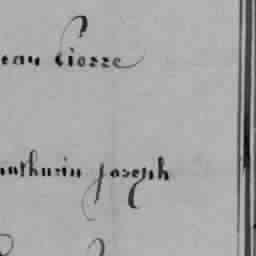 ean Pierre
mathurin joseph